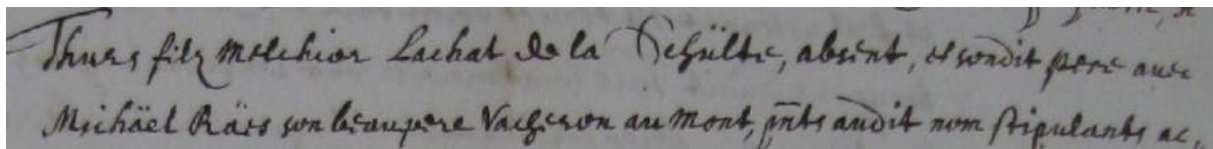 Thurs filz Melchior Lachat de la Schülte, absent, et sondit pere avec
Michäel Räes son beaupere Vacheron au Mont, pnts audit nom stipulants ac,